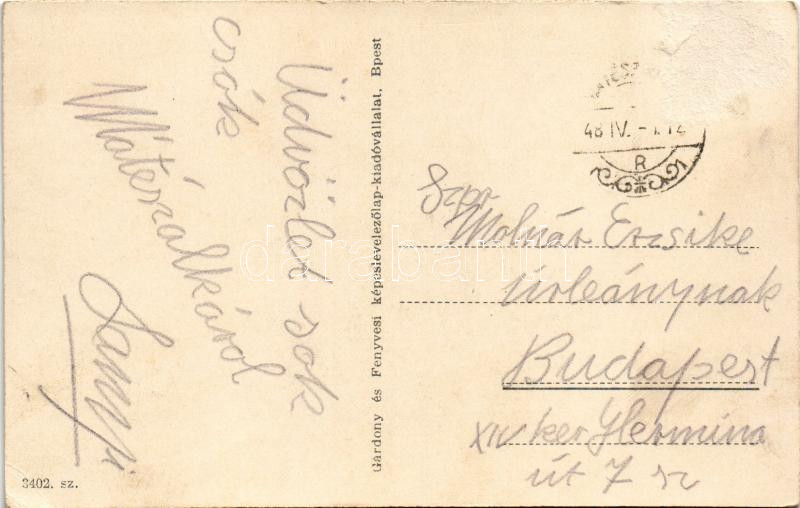 Üdvözlet sok
csók
Mátészálkáról
Sanyi
Gárdony és Fenyvesi képeslevelezőlap-kiadóvállalat, Bpest
48 IV.
R
Molnár Erzsike
Úrleánynak
Budapest
XIV ker Hermina
út 7 sz
3402. sz.
darabanth